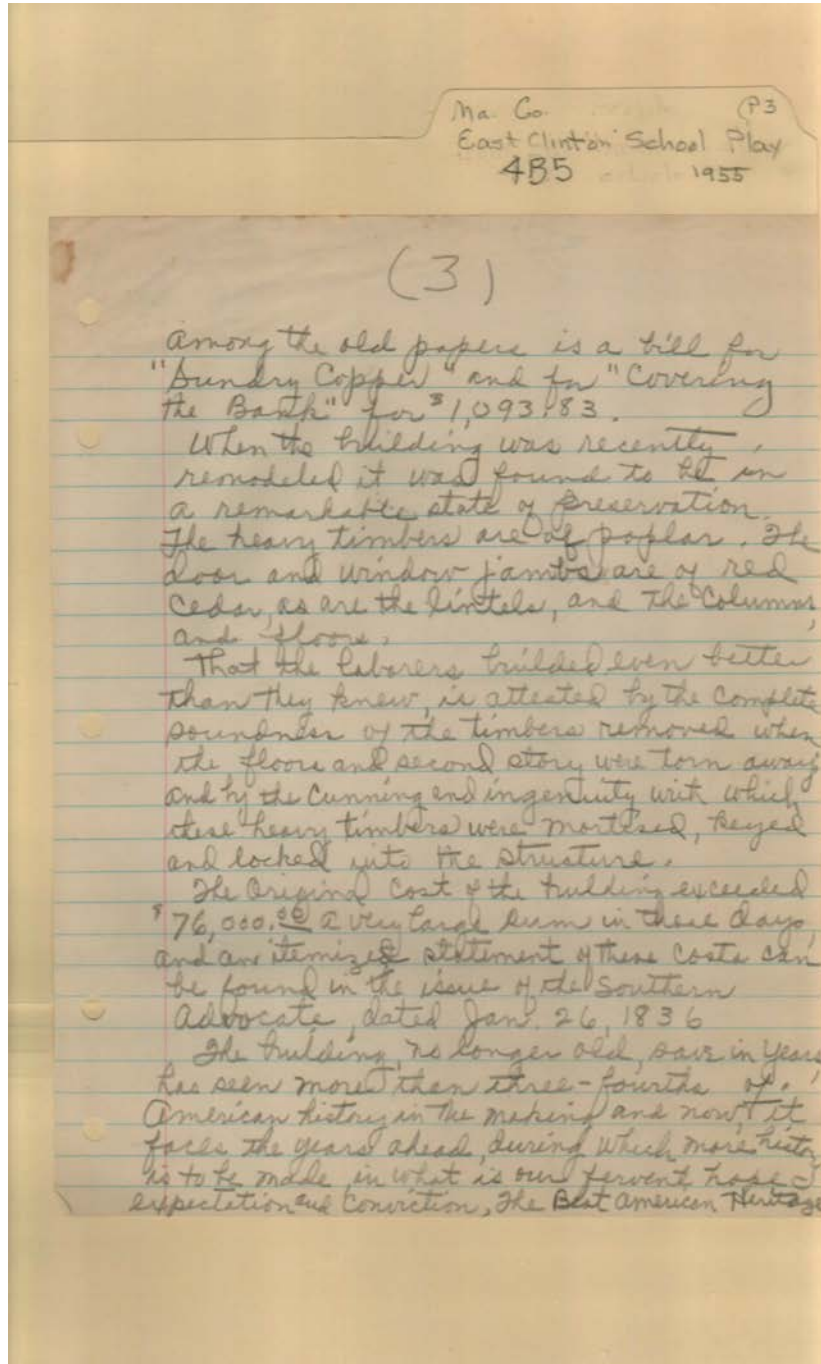 Ma. Co. (P3
East Clinton School Play
4B5 1955
(3)
Among the old papers is a bill for
"Sundry Copper" and for "Covering
the Bank" for $1,093.83.
When the building was recently
remodeled it was found to be in
a remarkable state of preservation.
The heavy timbers are of poplar. The
door and window jambs are of red
Cedar, as are the lintels, and the Columns,
and floors.
That the laborers builded even better
than they knew, is attested by the Complete
soundness of the timbers removed when
the floors and second story were torn away
and by the Cunning and ingenuity with which
these heavy timbers were mortised, keyed
and locked into the structure.
The Original Cost of the building exceeded
$76,000.00 a very large sum in those days,
and an itemized statement of these Costs can
be found in the issue of the Southern
Advocate, dated Jan. 26, 1836
The building, no longer old, save in years,
has seen more than three-fourths of
American history in the making and now, it
faces the years ahead, during which more history
is to be made, in what is our fervent hope
expectation and Conviction, The Best American Heritage